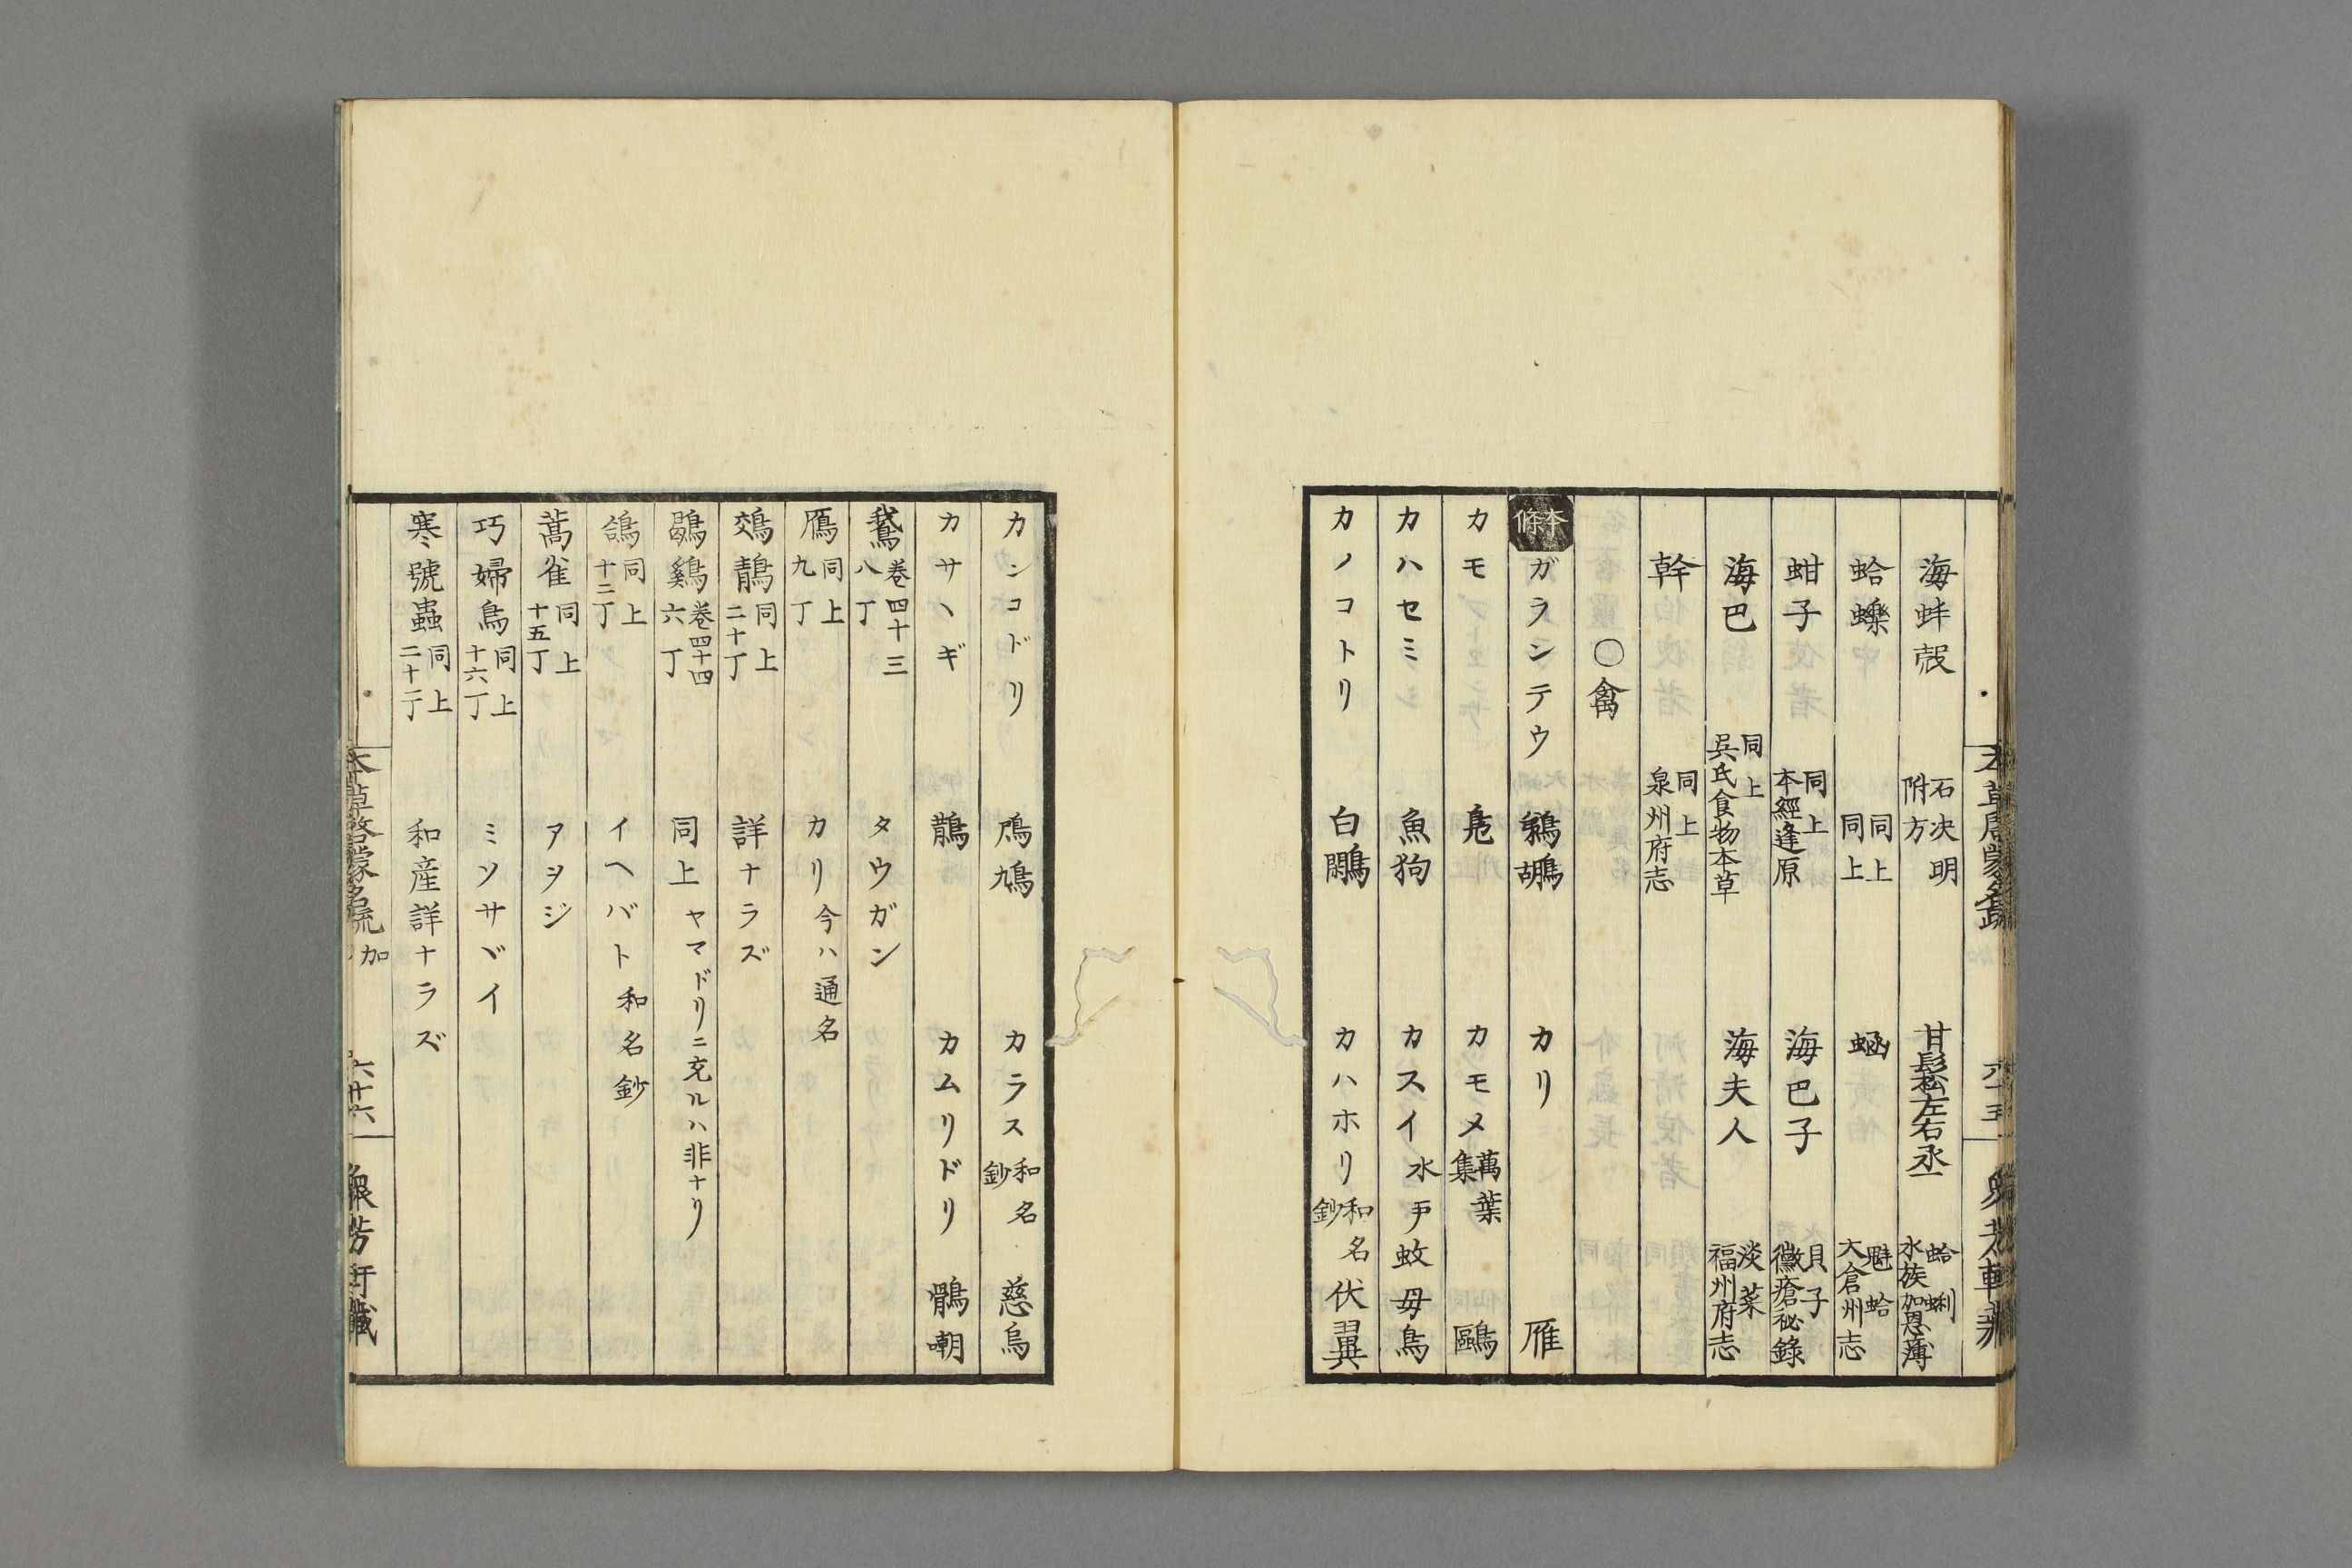 海蚌殻 石决明附方 甘鬆左右丞 蛤蜊水族加恩薄
蛤蠣 同上同上 蛎 魁蛤大倉州志
蚶子 同上本經逢原 海巴子 貝子黴瘡祕錄
海巴 同上呉氏食物本草 海夫人 淡菜福州府志
幹 同上泉州府志
〇禽
本條 ガランテウ 鵜鶘 カリ 雁
カモ 鳬 カモメ萬葉集 鷗
カハセミ 魚狗 カスイ水戸 蚊母鳥
カノコトリ 白鷴 カハホリ和名鈔 伏翼
カンコドリ 鳲鳩 カラス和名鈔 慈烏
カサヽギ 鵲 カムリドリ 鶻嘲
鵞巻四十三八丁 タウガン
鴈同上九丁 カリ今ハ通名
鵁鶄同上二十丁 詳ナラズ
鶡鷄巻四十四六丁 同上ヤマドリニ充ルハ非ナリ
鴿同上十二丁 イヘバト和名鈔
蒿雀同上十五丁 アヲジ
巧婦鳥同上十六丁 ミソサヾイ
寒號蟲同上二十二丁 和産詳ナラズ
本草啓蒙名疏 加 六十六 衆芳軒藏